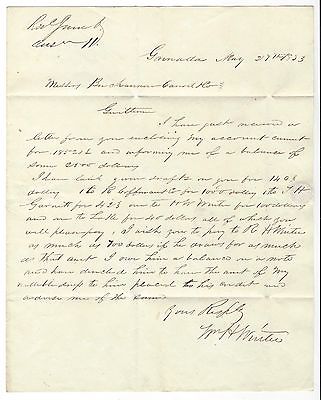 Recd June 2
Grenada May 27th 1853
Messrs Buchannan Carroll & Co
Gentlemen
I have just received a
letter from you enclosing my account current
for 1852 & 3 and informing me of a balance of
some 2500 dollars
I have lately given drafts on you for 1403
dollars 1 to R Coffman & Co for 1000 dollars 1 to T. H
Garrett for 423 one to W W Winter for 100 dollars
and one to Little for 40 dollars all of which you
will please pay. I wish you to pay to R H Winter
as much as 700 dollars if he draws for as much
as that amt I owe him a balance on a note
and have directed him to have the amt of my
draft to him placed to his credit and
advise me of the same
Yours Respfly
Wm H Winter